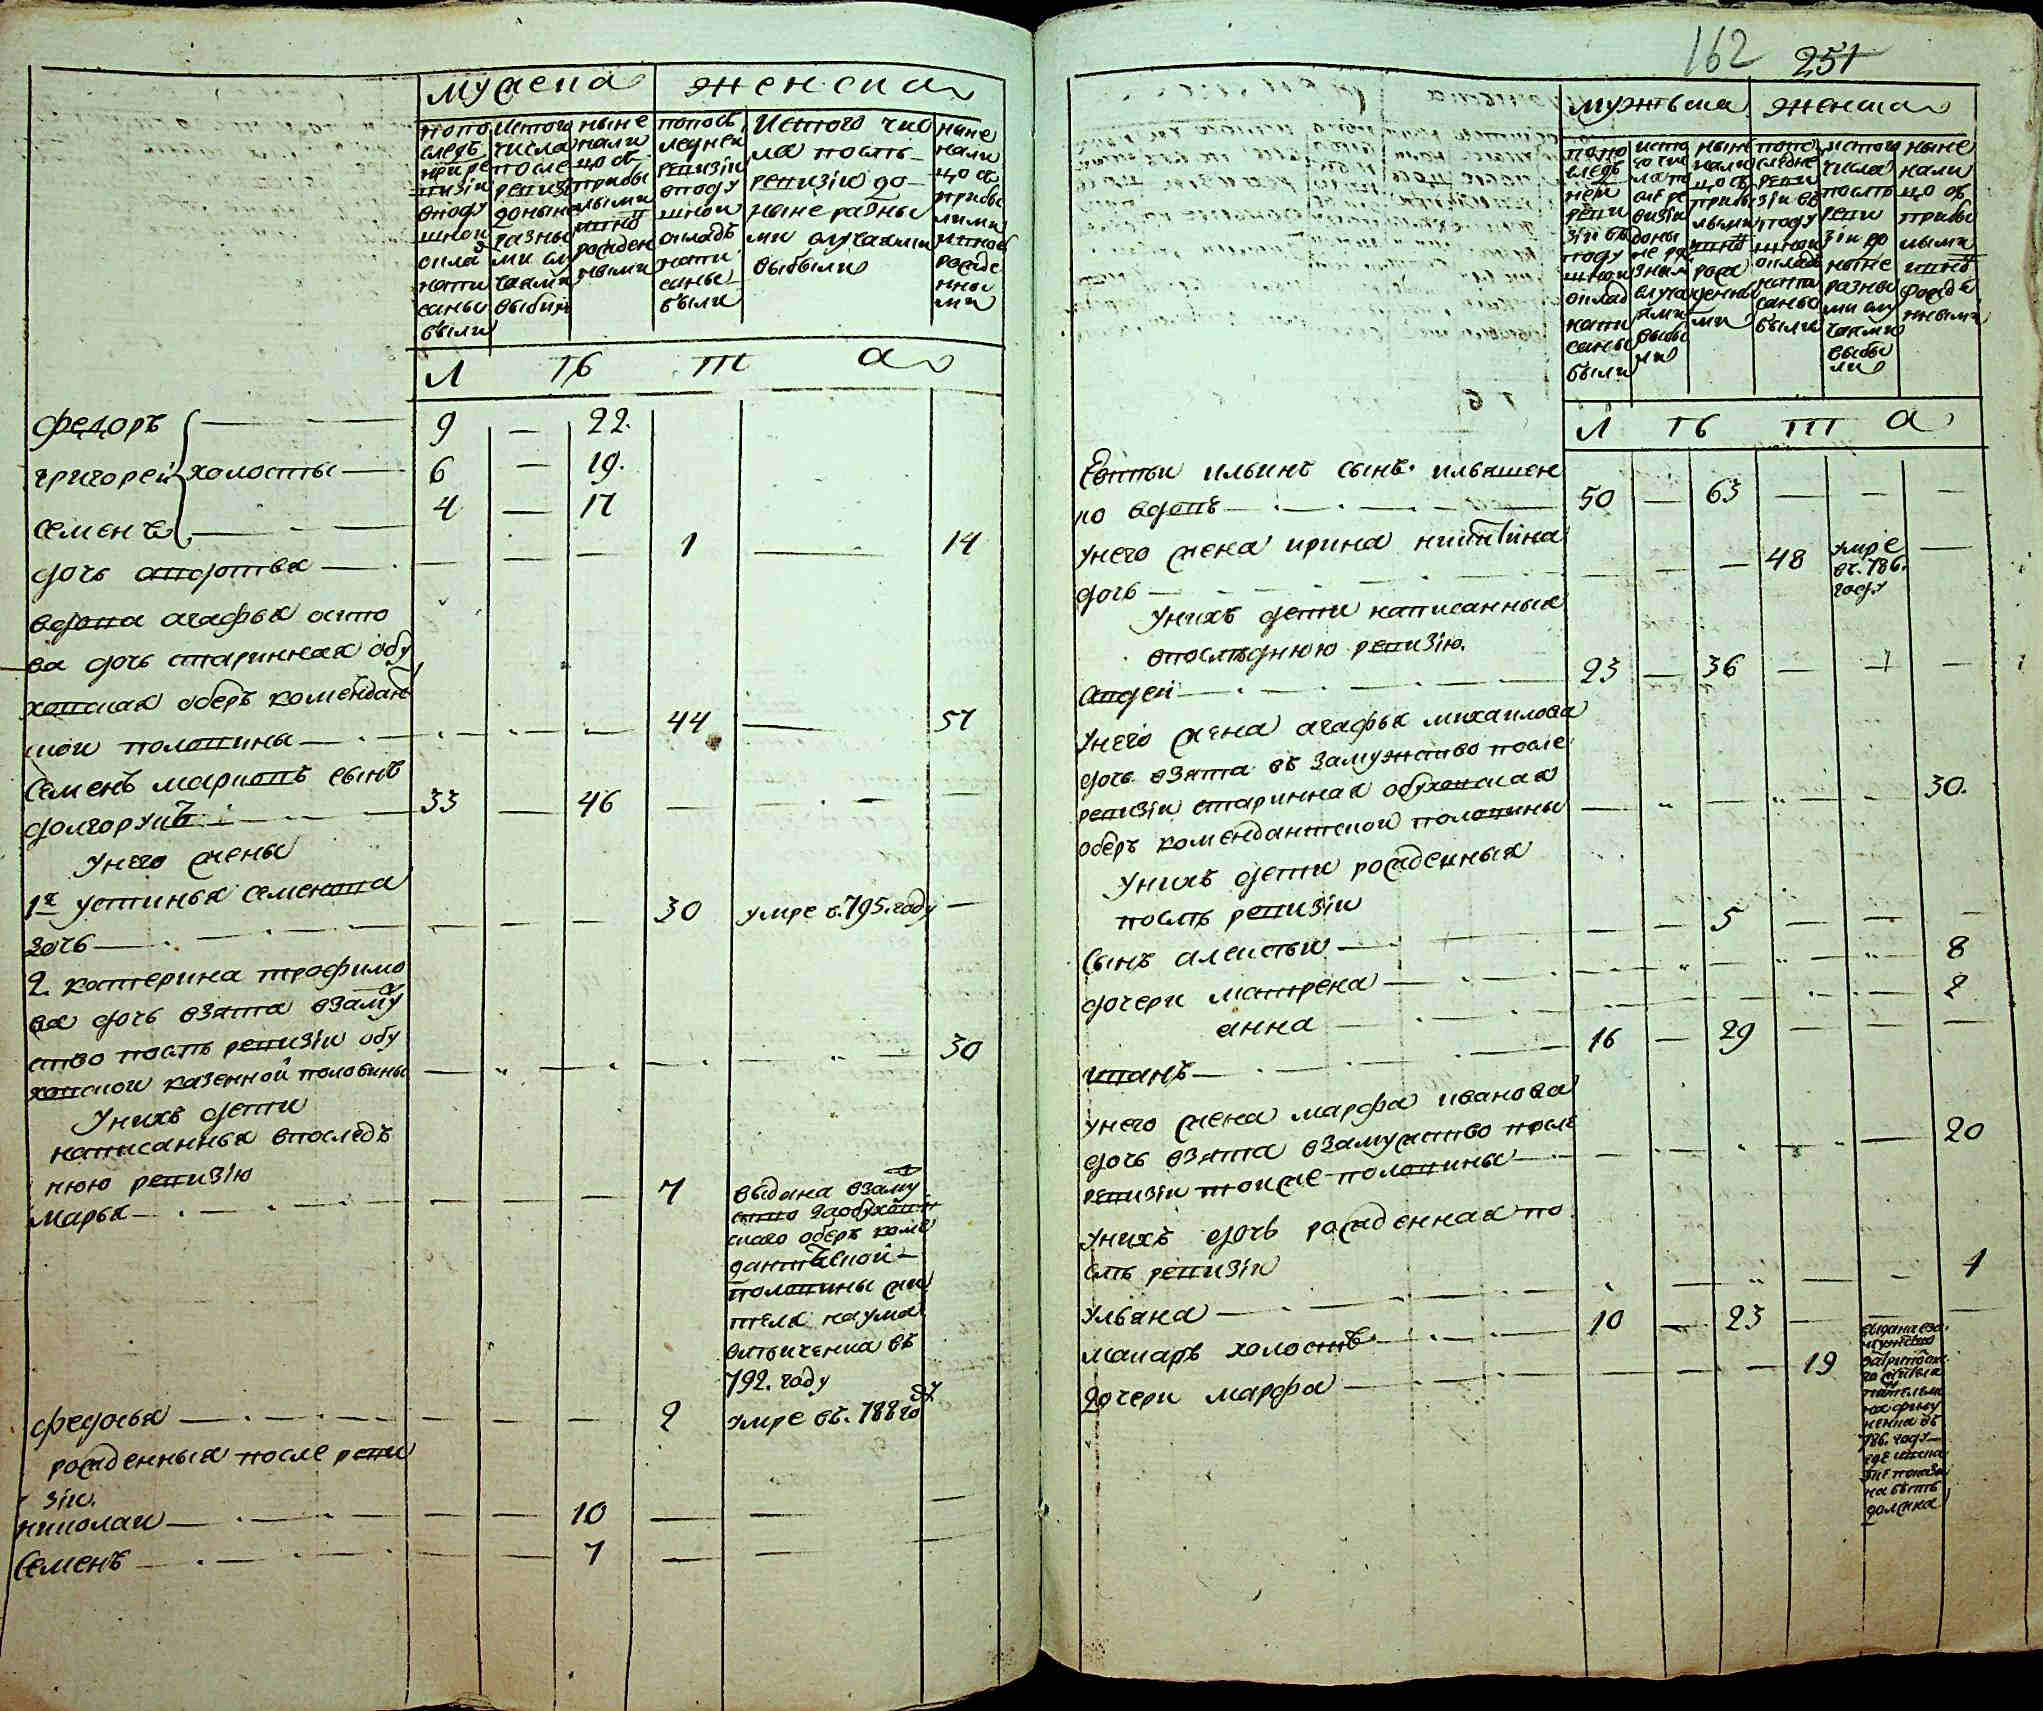 мужеска женска
попо
следъ
ней ре
визіи
вподу
шной
окла
дъ
напи
саны
были
истого
числа
после
ревизіи
доныне
разны
ми слу
чаями
выбыли
ныне
нали
цо съ
прибы
лыми
и вновь
рожден
ными
попосъ
ледней
ревизіи
вподу
шной
окладъ
напи
саны
были
исътого чис
ла послѣ
ревизіи до
ныне разны
ми случаями
выбыли
ныне
нали
цо съ
прибы
лими
ивновь
рожде
нны
ми
Л ѣ т а
федоръ 9 — 22.
григорей холосты 6 — 19.
семенъ 4 — 17
дочь авдотья 1 — 14
вдова агафья осипо
ва дочь старинная обу
ховская оберъ комендант
ской половины 44 — 57
Семенъ марковъ сынъ
долгорукий 33 — 46
Унего жены
1я устинья семенова
дочь 30 умре в.795.году
2 катерина трофимо
ва дочь взята взаму
ство послѣ ревизіи обу
ховской казенной половины 30
Унихъ дети
написанныя впоследъ
нюю ревизію
марья 7 выдана взаму
ство заобухов
скаго оберъ коме
дантской
половины жи
теля наума
792. году
федосья 2 умре въ.788 году
рожденныя после реви
зіи.
николаи 10
Семенъ 7
162 251
мужеска женска
попо
следъ
ней
реви
зіи въ
поду
шной
оклад
напи
саны
были
исто
го чис
ла по
сле ре
визіи
доны
не ра
зным
случа
ями
выбы
ли
ныне
нали
цо съ
прибы
лыми
ивновь
рож
денны
ми
попо
следне
реви
зіи въ
поду
шной
окладъ
напи
саны
были
истого
числа
послѣ
реви
зіи до
ныне
разны
ми слу
чаями
выбы
ли
ныне
нали
цо съ
прибы
лыми
ивновь
рожде
нными
Л ѣ т а
Евтѣи ильинъ сынъ ильяшен
ко вдовъ 50 — 63
унего жена ирина никитина
дочь 48 умре
въ.786.
году
Унихъ дети написанныя
впослѣднюю ревизію.
Авдей 23 — 36
Унего жена агафья михаилова
дочь взята въ замужство после
ревизіи старинная обуховская
оберъ комендантской половины 30.
Унихъ дети рожденныя
послѣ ревизіи
Сынъ алексѣи 5
дочери матрена 8
анна 2
иванъ 16 — 29
унего жена марфа иванова
дочь взята взамужство после
ревизіи тоиже половины 20
Унихъ дочь рожденная по
слѣ ревизіи
Ульяна 1
макаръ холостъ 10 — 23
дочери марфа 19 выдана вза
мужство
786. году
где ивпи
на быть
должна